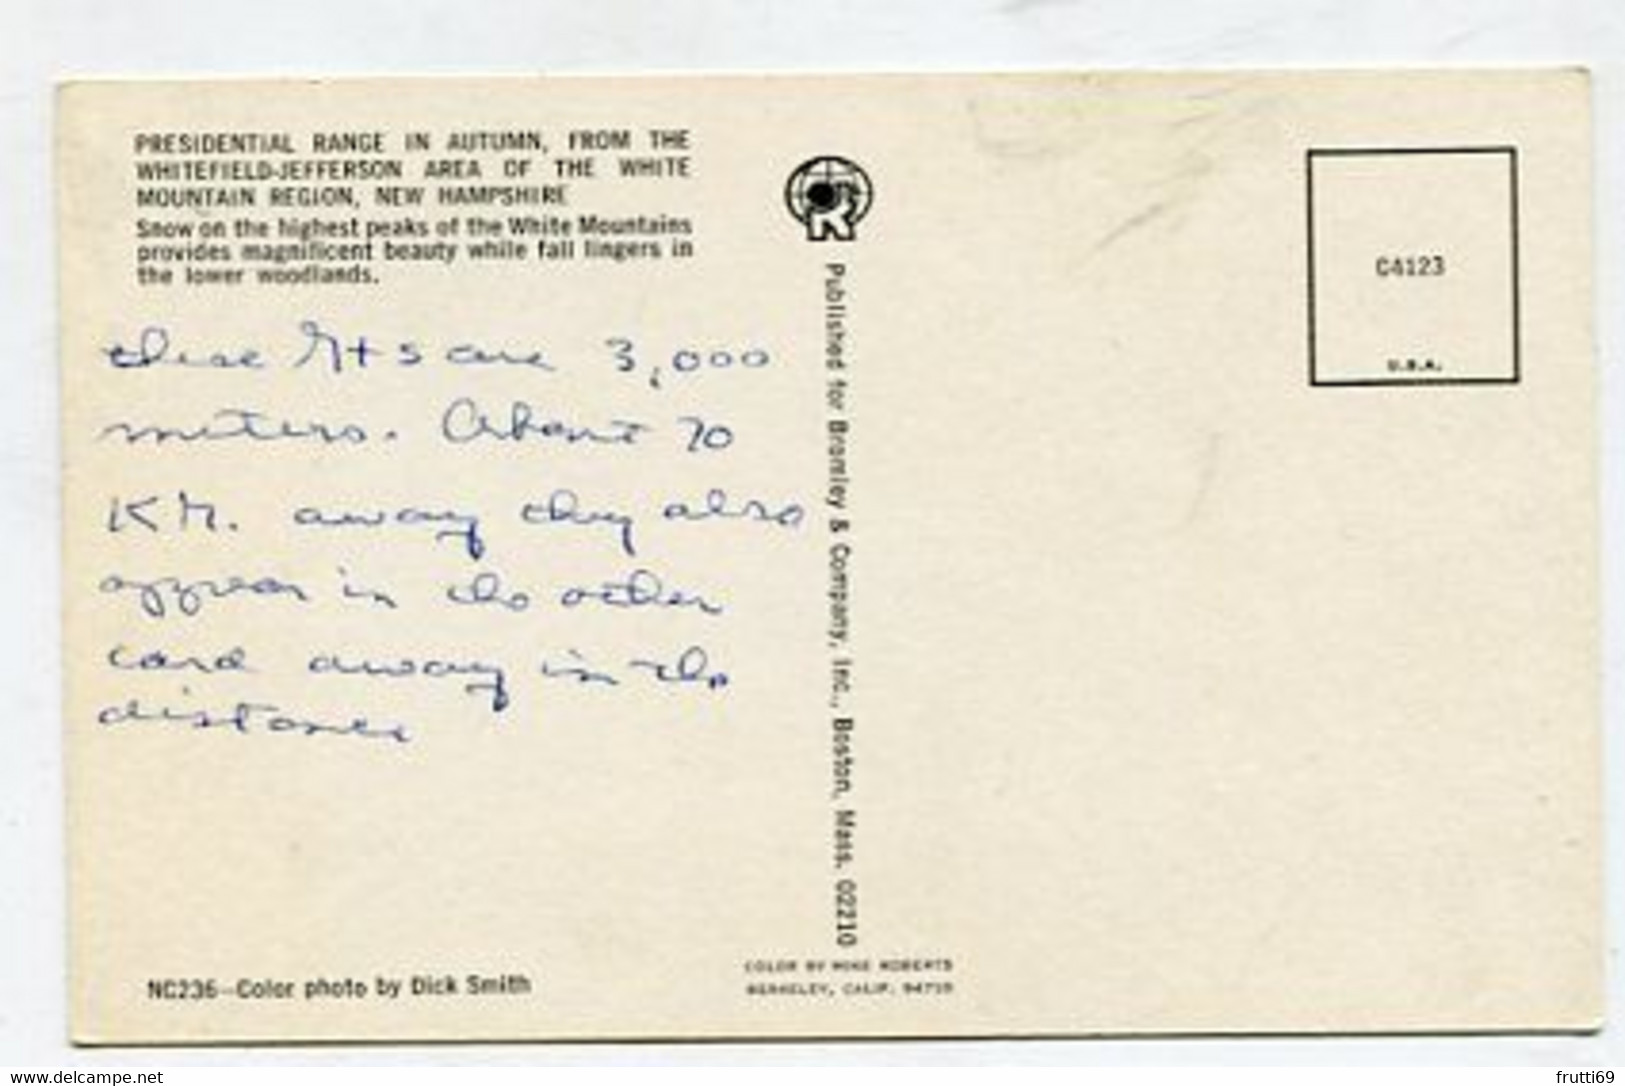 PRESIDENTIAL RANGE IN AUTUMN, FROM THE
WHITEFIELD-JEFFERSON AREA OF THE WHITE
MOUNTAIN REGION, NEW HAMPSHIRE
Snow on the highest peaks of the White Mountains
provides magnificent beauty while fall lingers in
the lower woodlands.
these Mts are 3,000
meters. About 70
KM. away they also
appear in the other
card away in the
distance
NC236—Color photo by Dick Smith
R
Published for Bromley & Company, Inc., Boston, Mass. 02210
COLOR BY MIKE ROBERTS
BERKELEY, CALIF. 94710
C4123
U.S.A.
www.delcampe.net
frutti69